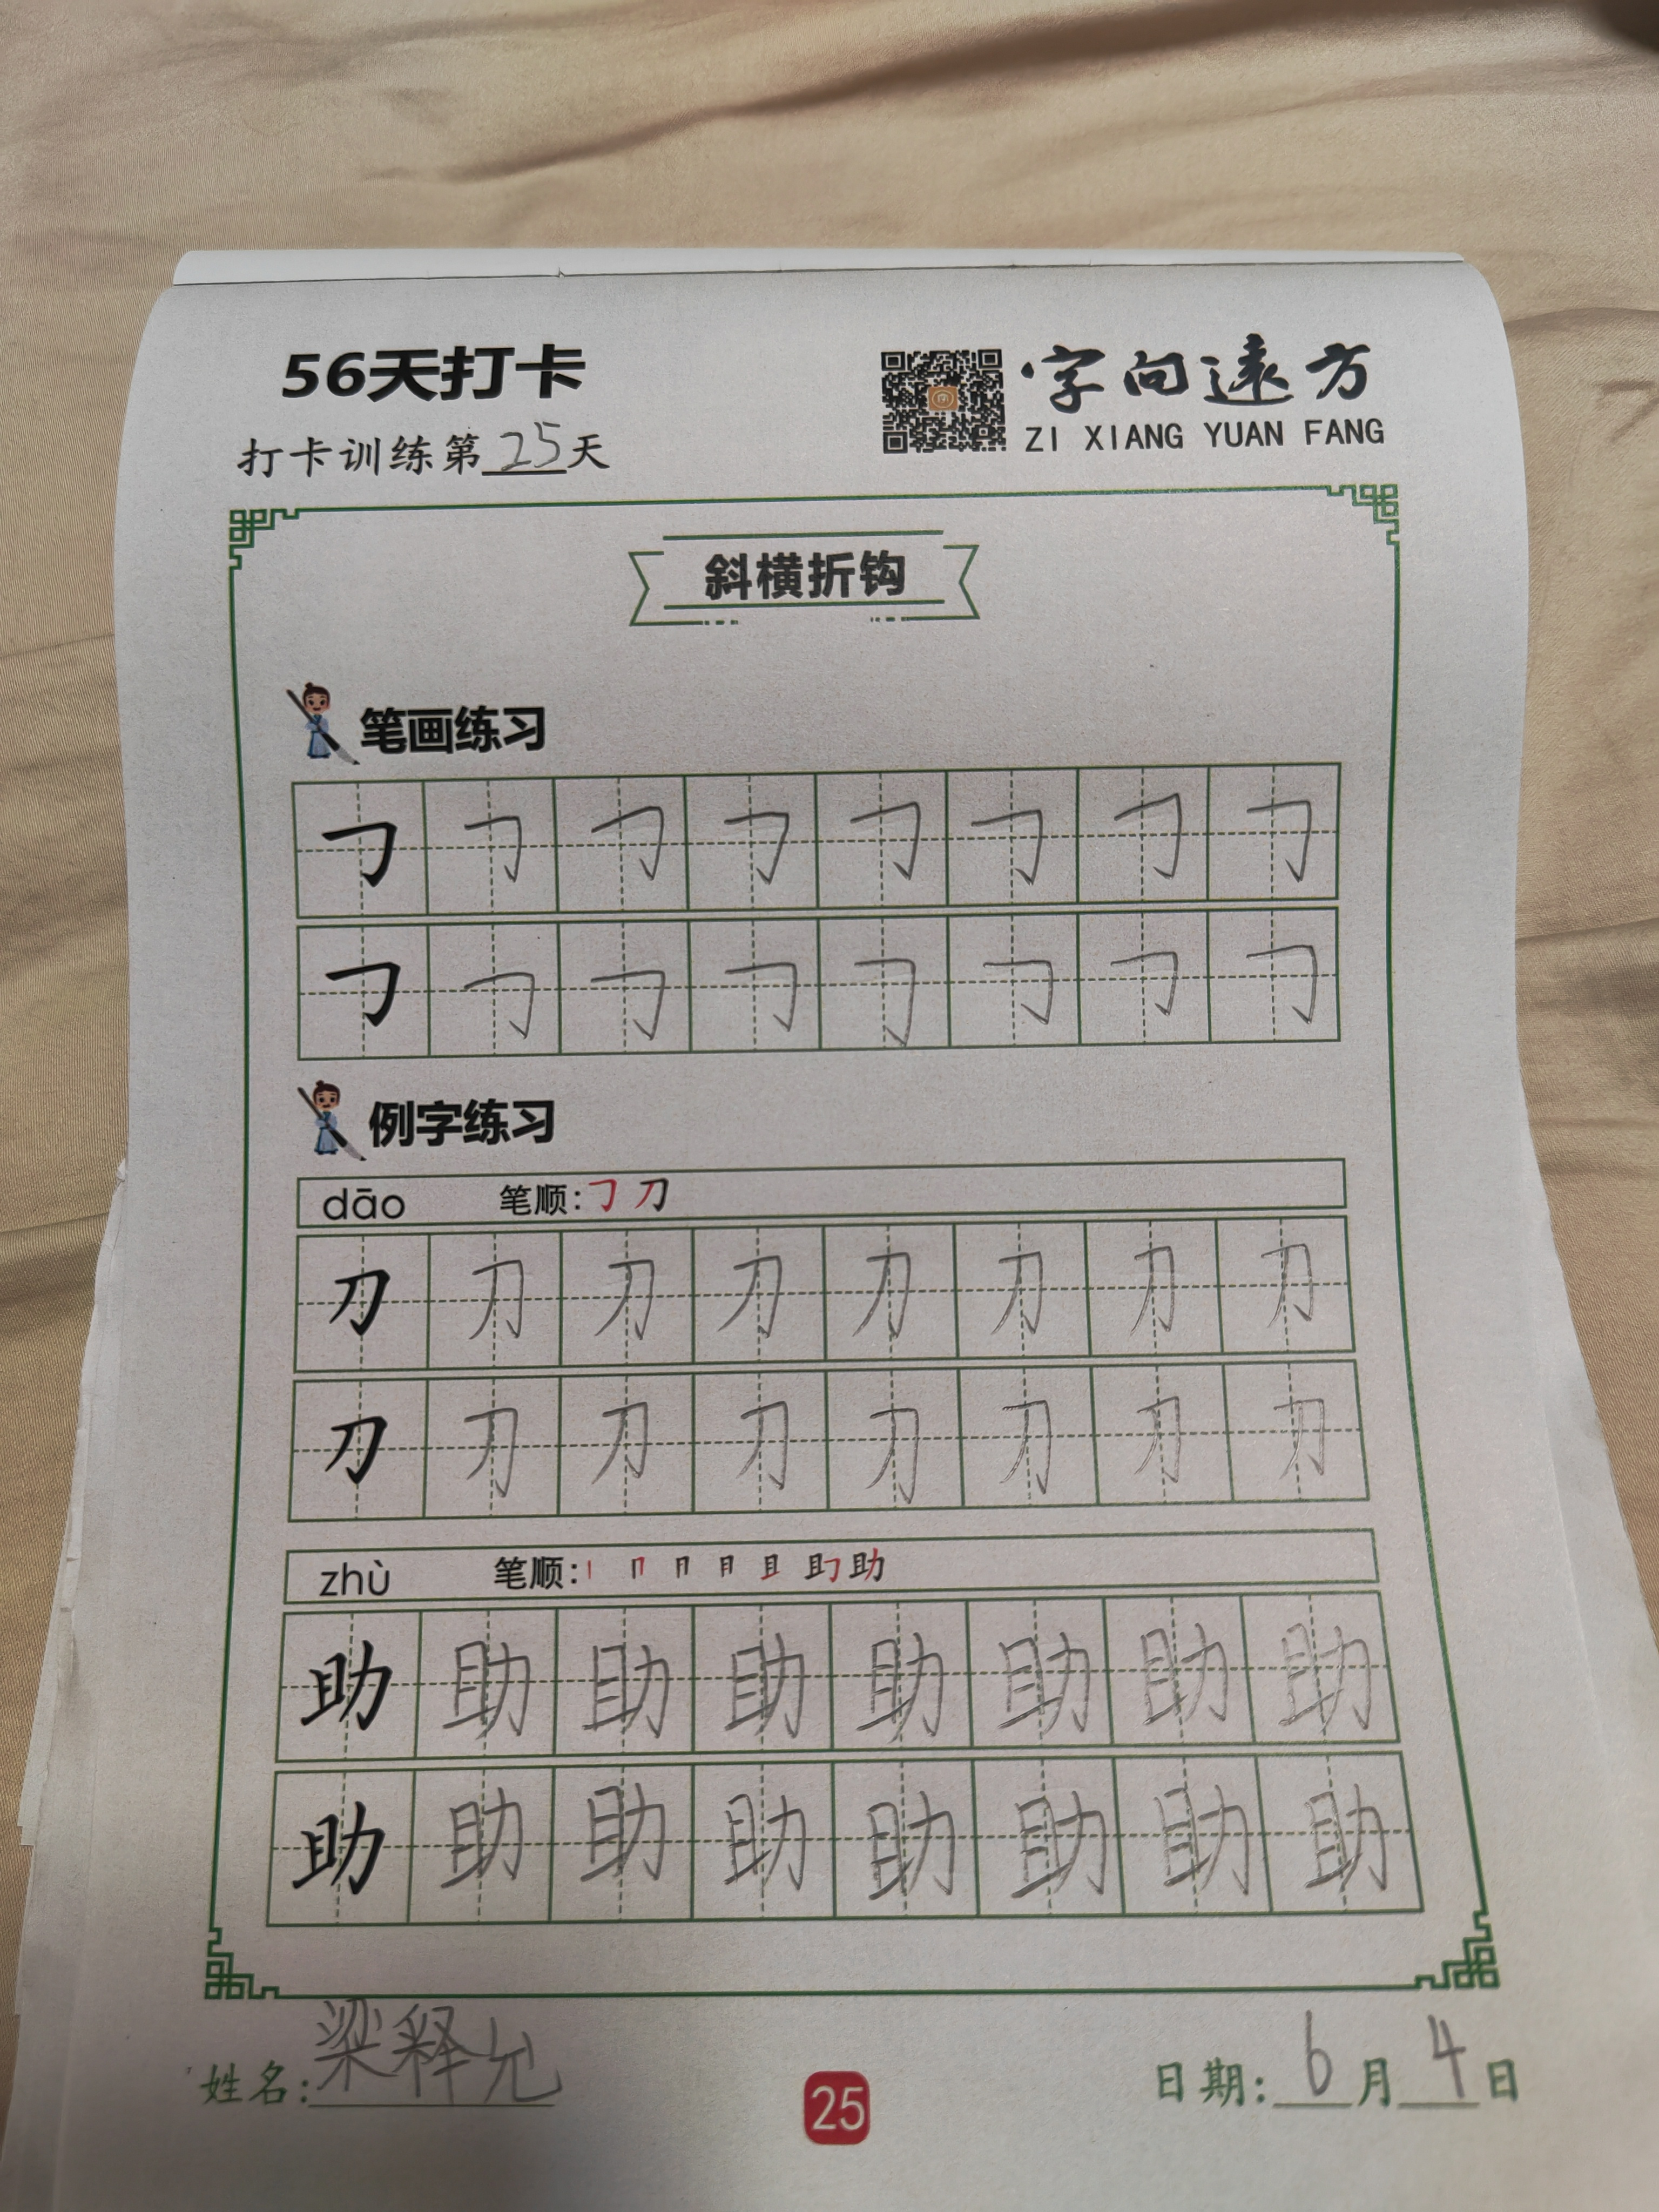 56天打卡
字向遠方
ZI XIANG YUAN FANG
打卡训练第25天
斜横折钩
笔画练习
㇆ ㇆ ㇆ ㇆ ㇆ ㇆ ㇆ ㇆
㇆ ㇆ ㇆ ㇆ ㇆ ㇆ ㇆ ㇆
例字练习
dāo 笔顺:㇆ 刀
刀 刀 刀 刀 刀 刀 刀 刀
刀 刀 刀 刀 刀 刀 刀 刀
zhù 笔顺:丨 冂 月 且 助
助 助 助 助 助 助 助 助
助 助 助 助 助 助 助 助
姓名:梁释允
25
日期:6月4日